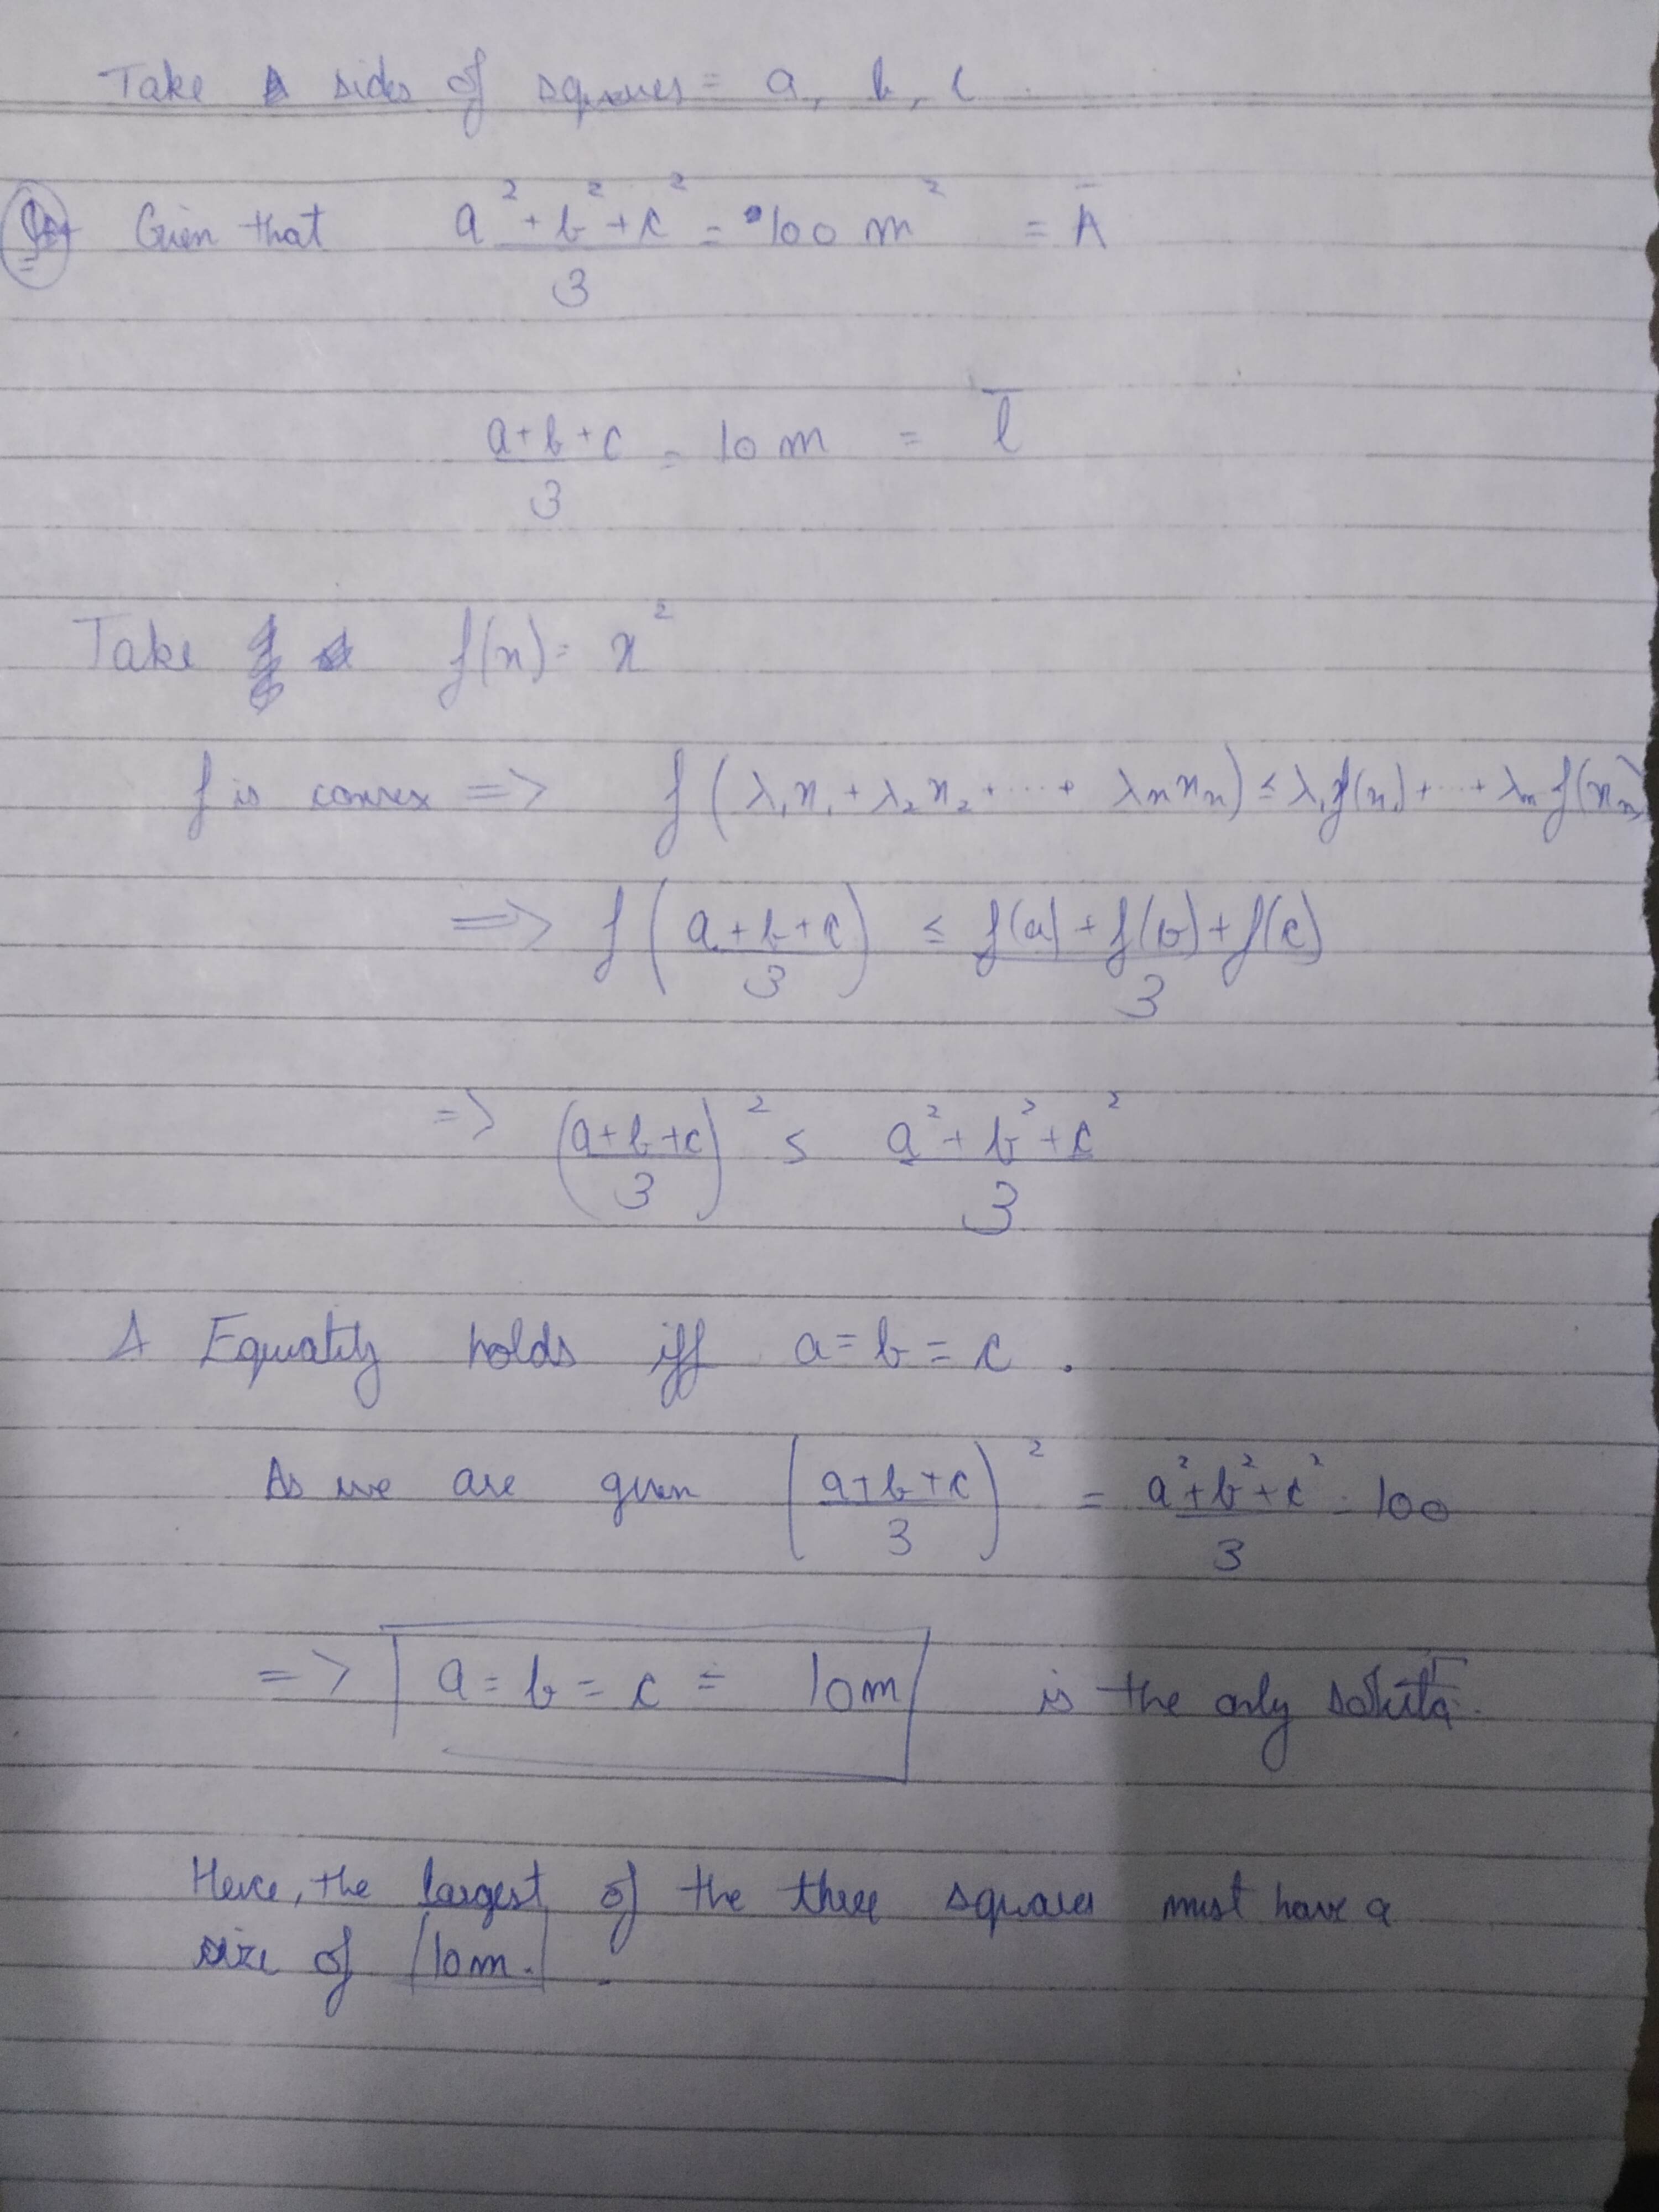 Take sides of squares = a, b, c.
Given that a² + b² + c² / 3 = 100 m² = Ā
a+b+c / 3 = 10 m = l̄
Take f(x) = x²
f is convex => f(λ₁x₁ + λ₂x₂ + ... + λₙxₙ) ≤ λ₁f(x₁) + ... + λₙf(xₙ)
=> f(a+b+c / 3) ≤ f(a) + f(b) + f(c) / 3
=> (a+b+c / 3)² ≤ a² + b² + c² / 3
Equality holds iff a = b = c.
As we are given (a+b+c / 3)² = a² + b² + c² / 3 = 100
=> a = b = c = 10m is the only
Hence, the largest of the three squares must have a
size of 10m.